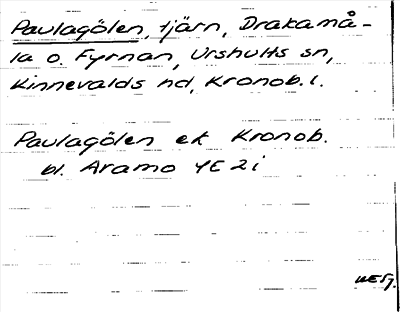 Paulagölen, tjärn, Drakamå-
la o. Fyrnan, Urshults sn,
Kinnevalds hd, Kronob. l.
Paulagölen ek Kronob.
bl. Aramo 4E2i